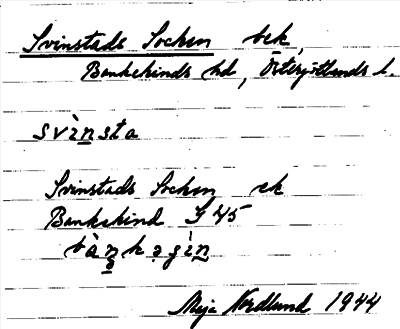 Svinstads Socken bek,
Bankekinds hd, Östergötlands l.
svìnsta
Svinstads Socken ek
Bankekind G 45
Maja Nordlund 1944